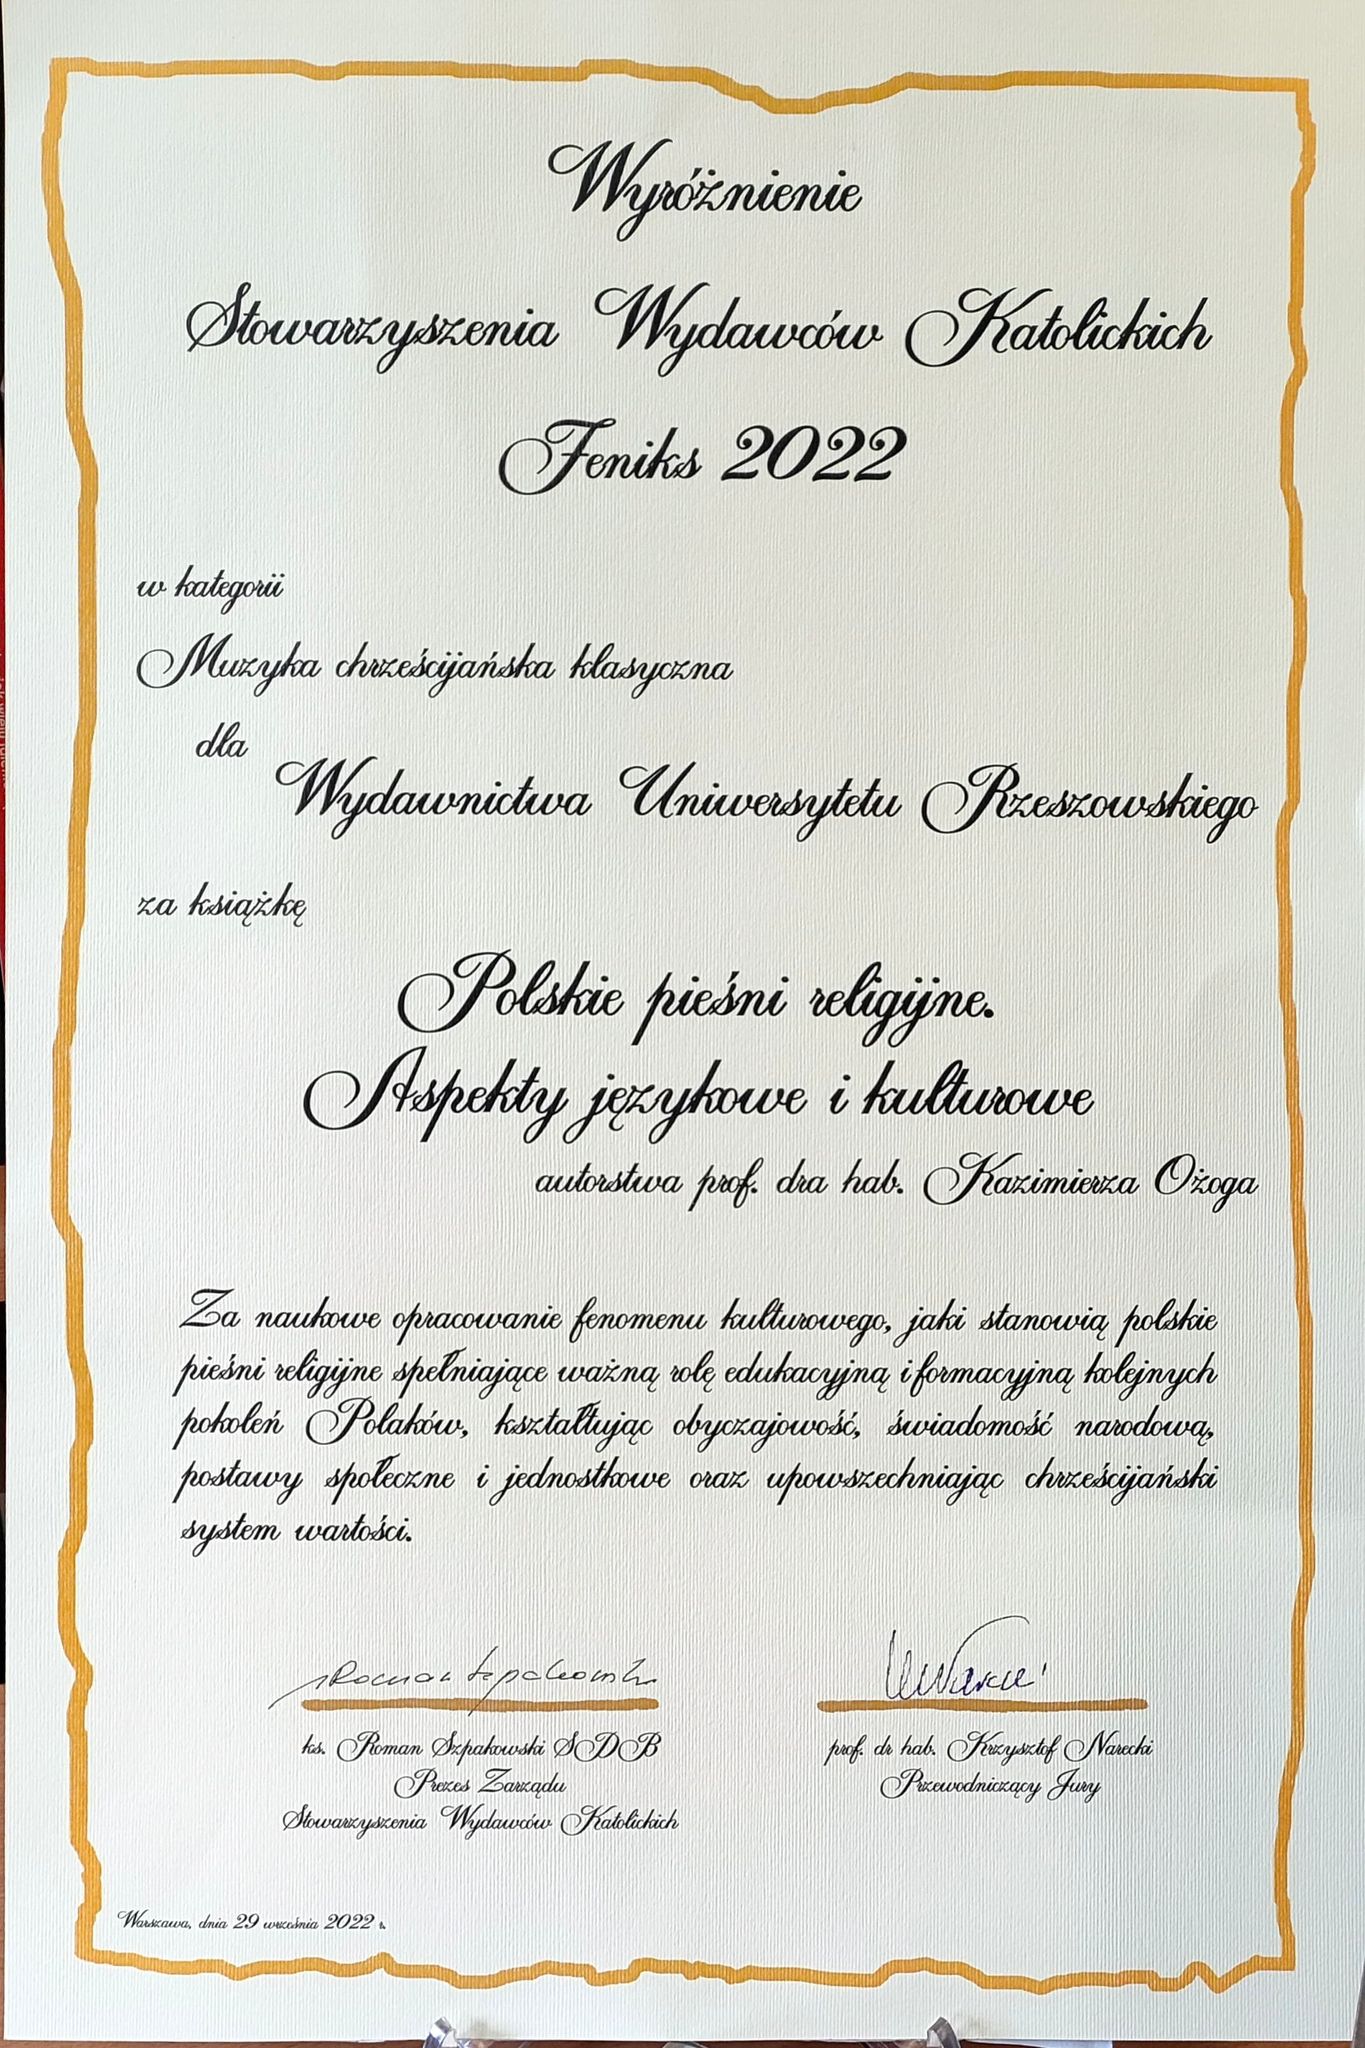 Wyróżnienie
Stowarzyszenia Wydawców Katolickich
Feniks 2022
w kategorii
Muzyka chrześcijańska klasyczna
dla
Wydawnictwa Uniwersytetu Rzeszowskiego
za książkę
Polskie pieśni religijne.
Aspekty językowe i kulturowe
autorstwa prof. dra hab. Kazimierza Ożoga
Za naukowe opracowanie fenomenu kulturowego, jaki stanowią polskie
pieśni religijne spełniające ważną rolę edukacyjną i formacyjną kolejnych
pokoleń Polaków, kształtując obyczajowość, świadomość narodową,
postawy społeczne i jednostkowe oraz upowszechniając chrześcijański
system wartości.
ks. Roman Szpakowski SDB
Prezes Zarządu
Stowarzyszenia Wydawców Katolickich
prof. dr hab. Krzysztof Narecki
Przewodniczący Jury
Warszawa, dnia 29 września 2022 r.